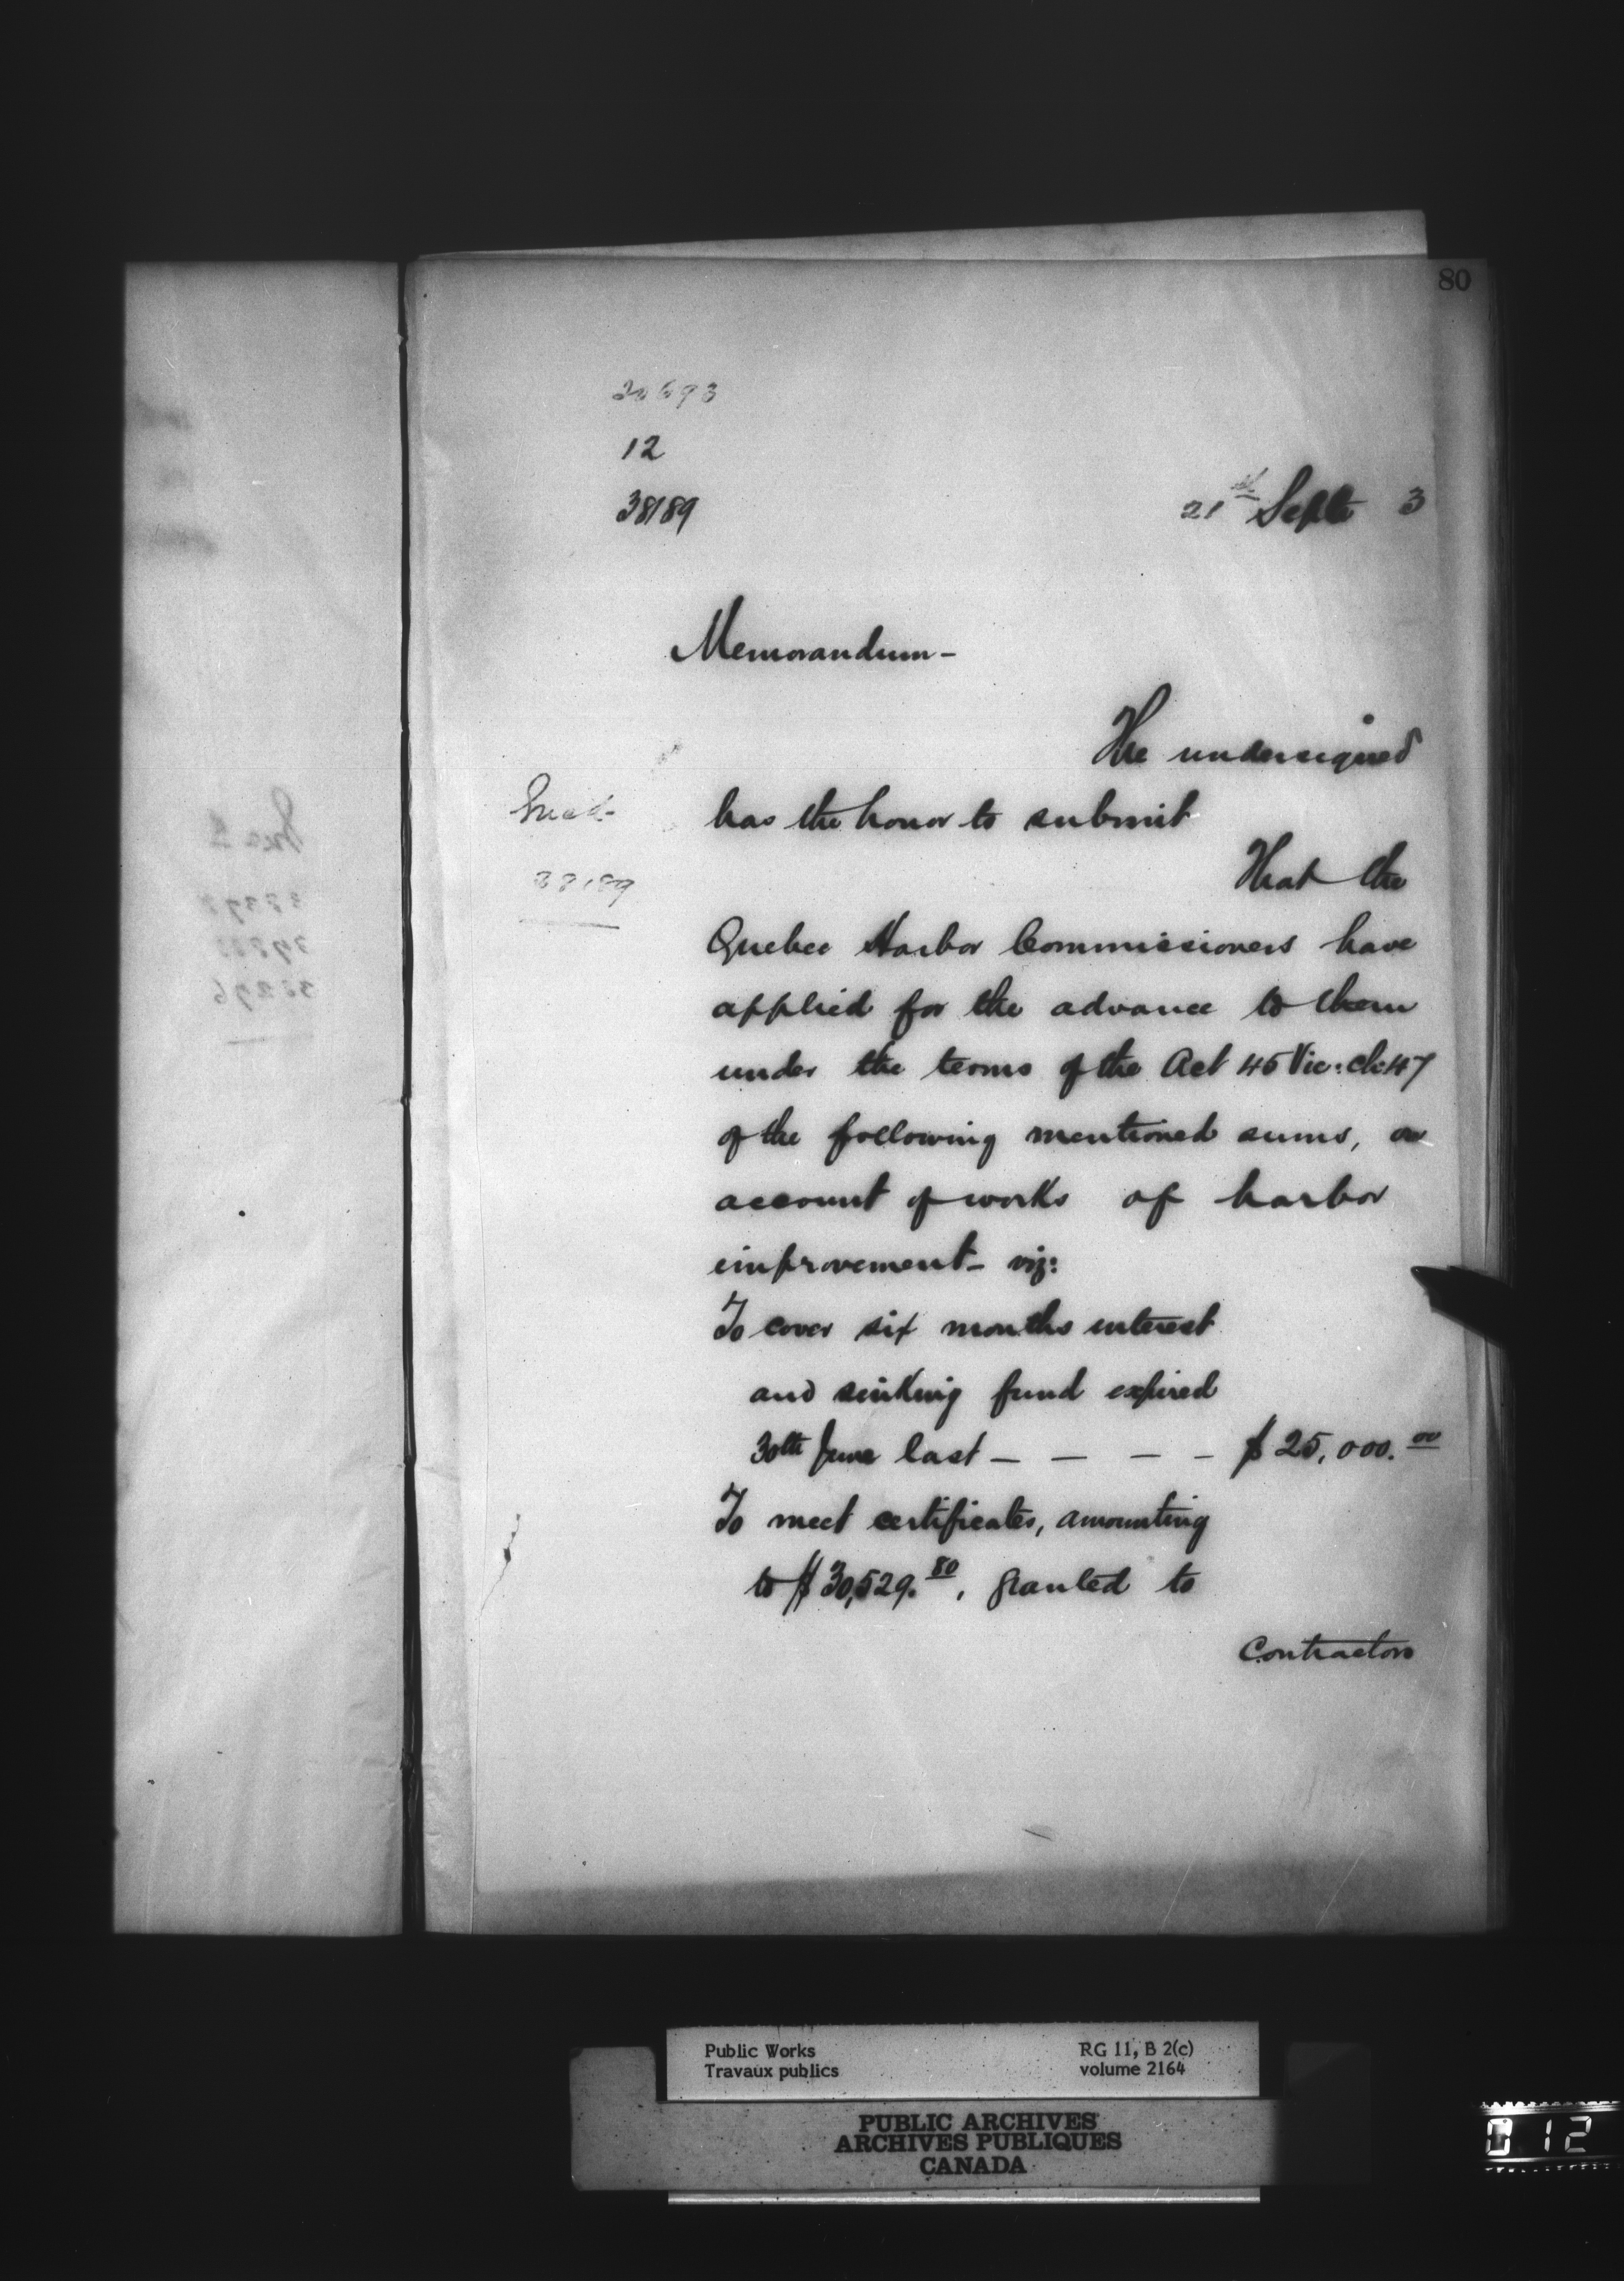 80
20693
12
38189
21st Sept 3
Memorandum -
The undersigned
has the honor to submit
38189
That the
Quebec Harbor Commissioners have
applied for the advance to them
under the terms of the Act 45 Vic: ch: 47
of the following mentioned sums, on
account of works of harbor
improvement - viz:
To cover six months interest
and sinking fund expired
30th June last - - - - $ 25,000.00
To meet certificates, amounting
to $ 30,529.80, granted to
Contractors
Public Works
Travaux publics
RG 11, B 2(c)
volume 2164
PUBLIC ARCHIVES
ARCHIVES PUBLIQUES
CANADA
012